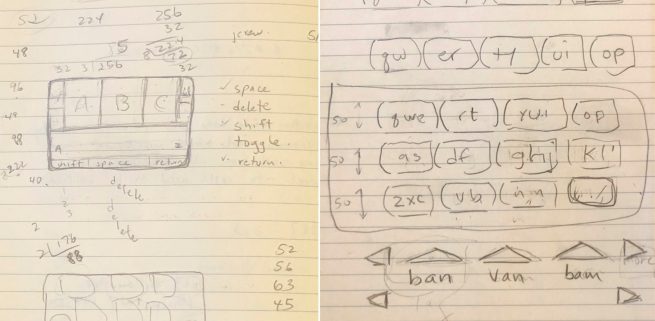 52 224 256
32
screw.
48 85 224
8 72
32 31 256 32
96
A B C
✓ space
- delete
✓ shift
toggle.
✓ return.
48
88
A Z
shift space return
222
40.
1
2
3
delete
delete
2
2 176
88
52
56
63
45
qw er ty ui op
50 qwe rt yui op
50 as df ghj kl'
50 zxc vb n,m
ban van bam
more